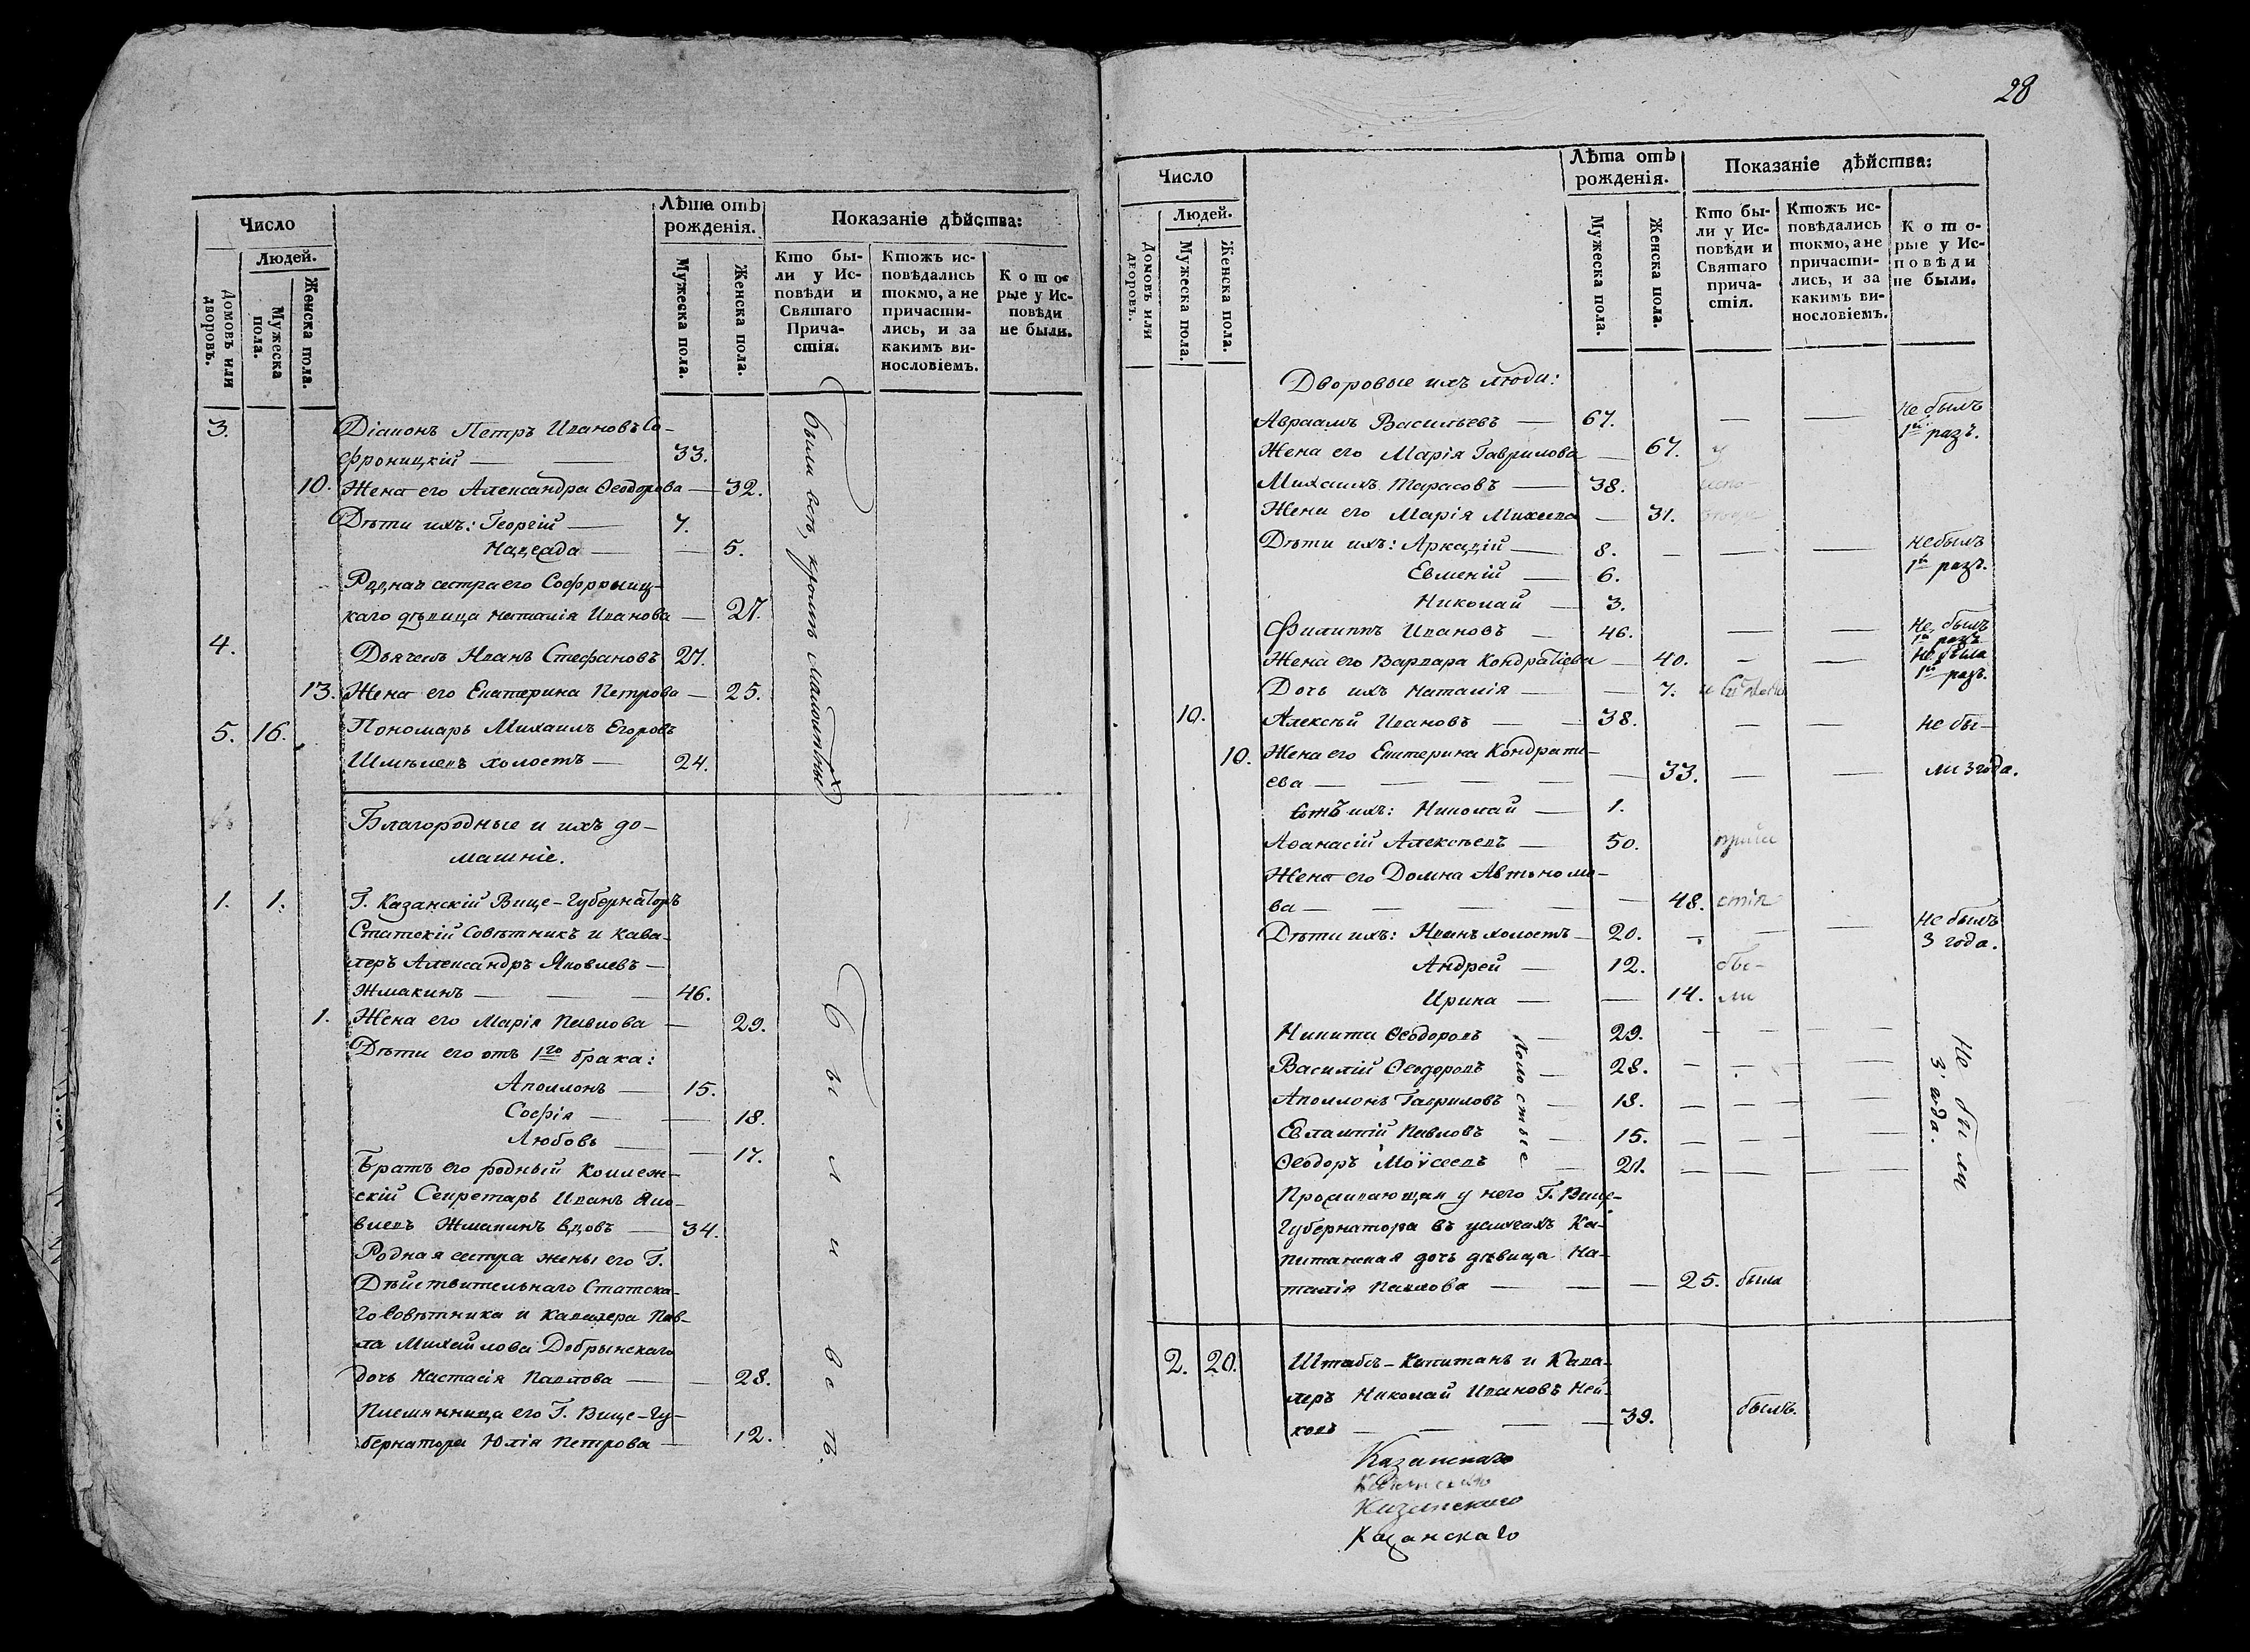 Число
Лѣта отъ рожденія.
Показаніе дѣйства:
Людей.
Домовъ или дворовъ.
Мужеска пола.
Женска пола.
Мужеска пола.
Женска пола.
Кто бы-
ли у Ис-
повѣди и
Святаго
Прича-
стія.
Ктожъ ис-
повѣдались
токмо, а не
причасти-
лись, и за
какимъ ви-
нословіемъ.
Кото-
рые у Ис-
повѣди
не были.
3. Діаконъ Петръ Ивановъ Со-
фроницкій — 33.
10. Жена его Александра Ѳеодорова — 32.
Дѣти ихъ: Георгій — 7.
Надежда — — 5.
Родная сестра его Софрониц-
каго дѣвица Наталія Иванова — 27.
4. Дьячекъ Иванъ Стефановъ 27.
13. Жена его Екатерина Петрова — 25.
5. 16. Пономарь Михаилъ Егоровъ
холостъ — 24.
были всѣ, кромѣ малолѣтныхъ
Благородные и ихъ до-
машніе.
1. 1. Г. Казанскій Вице-Губернаторъ
Статскій Совѣтникъ и Кава-
леръ Александръ Яковлевъ —
Жмакинъ — — 46.
1. Жена его Марія Павлова — 29.
Дѣти его отъ 1го брака:
Аполлонъ — 15.
Софія — — 18.
Любовь — — 17.
Братъ его родный Коллеж-
скій Секретарь Иванъ Яко-
влевъ Жмакинъ вдовъ — 34.
Родная сестра жены его Г.
Дѣйствительнаго Статска-
го Совѣтника и Кавалера Пав-
ла Михайлова Добрынскаго
дочь Настасія Павлова — — 28.
Племянница его Г. Вице-Гу-
бернатора Юлія Петрова — 12.
Были всѣ.
28
Число
Лѣта отъ
рожденія.
Показаніе дѣйства:
Людей.
Домовъ или дворовъ.
Мужеска пола.
Женска пола.
Мужеска пола.
Женска пола.
Кто бы-
ли у Ис-
повѣди и
Святаго
прича-
стія.
Ктожъ ис-
повѣдались
токмо, а не
причасти-
лись, и за
какимъ ви-
нословіемъ.
Кото-
рые у Ис-
повѣди
не были.
Дворовые ихъ люди:
Авраамъ Васильевъ — 67. — — Не былъ
1й разъ.
Жена его Марія Гаврилова — 67. у
Михаилъ Тарасовъ — 38. испо-
Жена его Марія Михеева — 31.
Дѣти ихъ: Аркадій — 8. — — — Небылъ
1й разъ.
Евменій — 6.
Николай — 3.
Филиппъ Ивановъ — 46. — — Не былъ
1й разъ
Жена его Варвара Кондратіева — 40. — — Не была
1й разъ.
Дочь ихъ Наталія — — 7.
10. Алексѣй Ивановъ — — 38. — — Не бы-
10. Жена его Екатерина Кондрати-
ева — — — — 33. — — ли 3 года.
ихъ: Николай — 1.
Аѳанасій Алексѣевъ — 50. прича
Жена его Домна Автономо-
ва — — — — — 48. стія
Дѣти ихъ: Иванъ холостъ — 20. — — — Не былъ
3 года.
Андрей — 12. бы-
Ирина — — 14. ли
Никита Ѳеодоровъ — 29. — — —
Василій Ѳеодоровъ — 28. — — —
Аполлонъ Гавриловъ — 18. — — —
Евлампій Павловъ — 15. — — —
Ѳеодоръ Моѵсеевъ — 21. — — —
Холостые
Не были
3 года.
Проживающая у него Г. Вице-
Губернатора въ услугахъ Ка-
питанская дочь дѣвица На-
талія Павлова — — — 25. была
2. 20. Штабсъ-Капитанъ и Кава-
леръ Николай Ивановъ Ней-
ковъ — — — — 39. былъ.
Казанскаго
Казанскаго
Казанскаго
Казанскаго